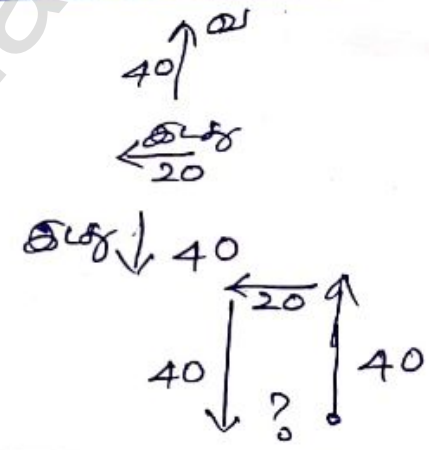 வ
40
இடது
20
இடது 40
20
40 40
?